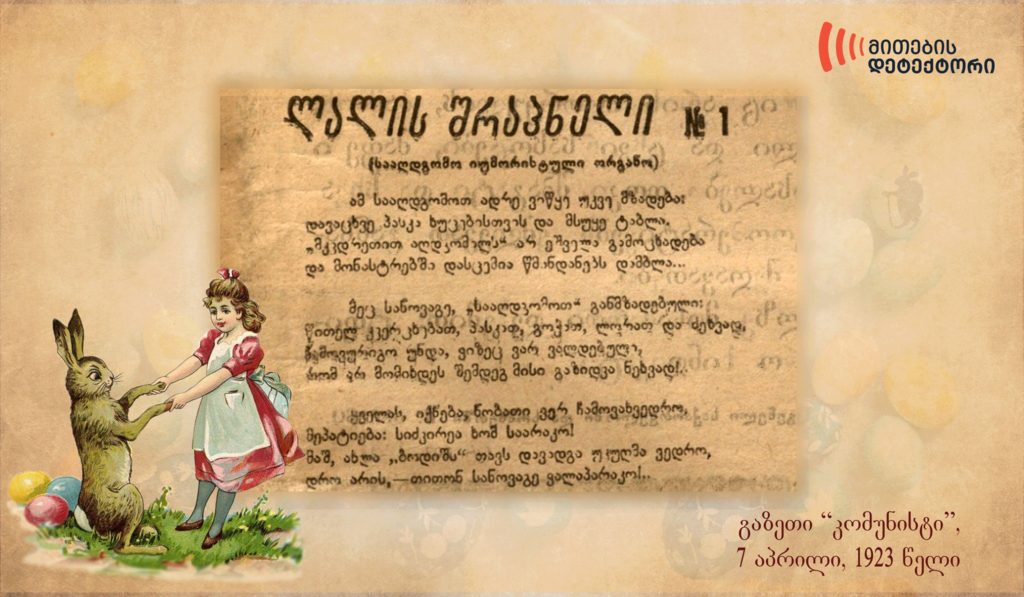 მითების
დეტექტორი
ლალის შრაპნელი № 1
(სააღდგომო იუმორისტული ორგანო)
ამ სააღდგომოთ ადრე ვიწყე უკვე მზადება:
დავაცხვე პასკა ხუცებისთვის და მსუყე ტაბლა.
„მკვდრეთით აღდგომელს“ არ ეშველა გამოცხადება
და მონასტრებში დასცემია წმინდანებს დამბლა...
მეც სანოვაგე, „სააღდგომოთ“ განმზადებული:
წითელ კვერცხებათ, პასკათ, გოჭათ, ლორათ და ძეხვად,
ჩამოვურიგო უნდა, ვიზეც ვარ ვალდებული,
რომ არ მომიხდეს შემდეგ მისი გაზიდვა ნეხვად!..
ყველას, იქნება, ნობათი ვერ ჩამოვახვედრო,
მეპატიება: სიძვირეა ხომ საარაკო!
მაშ, ახლა „ბოდიშს“ თავს დავადგა უკუღმა ვედრო,
დრო არის,—თითონ სანოვაგე ვალაპარაკო!..
გაზეთი “კომუნისტი”,
7 აპრილი, 1923 წელი